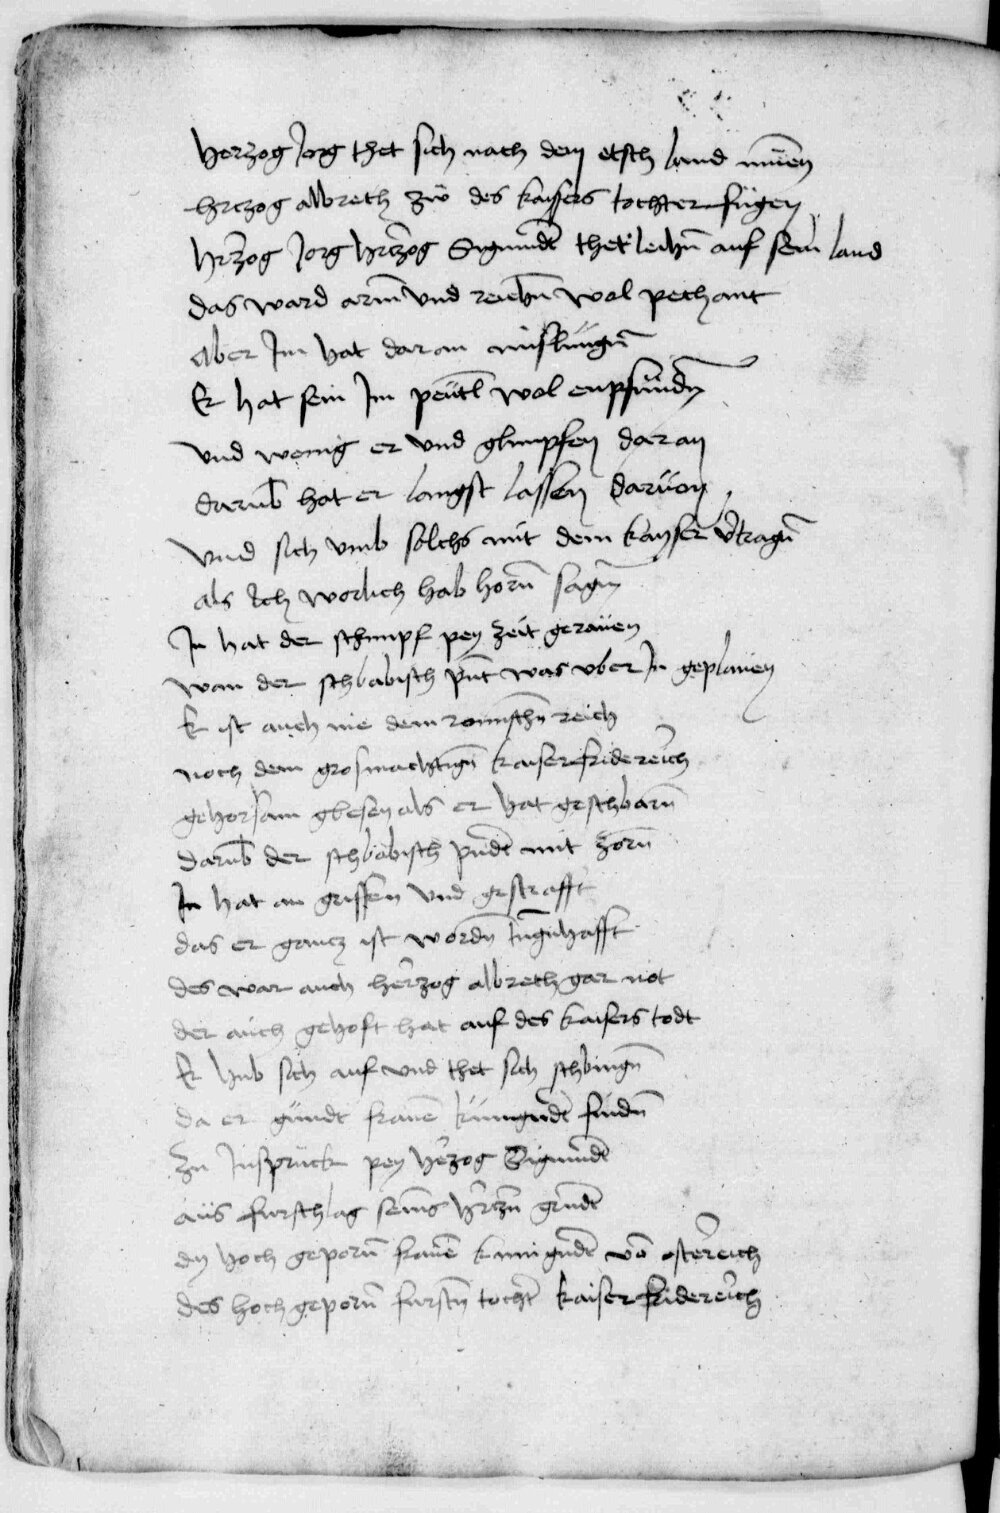 Herzog Jorg thet sich nach dem etsch land müen
Hrczog albreth zw des kaysers tochter fügen
Hrzog Jorg Hrczog Sigmundt thet leihn auf sein land
das ward arm vnd reichn wol pechant
aber Jm hat daran mislungn
Er hat sein Jm peutl wol enpfundn
vnd wenig er vnd glimpfen daran
darub hat er langst lassen daruon
Vnd sich vmb solchs mit dem kayser vtragn
als Jch worlich hab horn sagn
Jn hat der schimpf pey zeit gerauen
wan der schbabisch punt was vber Jn geplauen
Er ist auch nie dem romischn reich
noch dem grosmachtign kaiser fridereich
gehorsam gbesen als er hat geschbarn
darub der schbabisch pundt mit zorn
Jn hat an griffen vnd gestrafft
das er gancz ist wordn
des war auch herzog albreth gar not
der auch gehoft hat auf des kaisers todt
Er hub sich auf vnd thet sich schbingn
da er gundt frauen kunigundt findn
zu Jnspruck pey Herzog Sigmundt
aus furschlag seins hrczn grundt
dy hoch geporn frauen kunigundt von ostereich
des hoch geporn furstn tochter kaiser fridereich